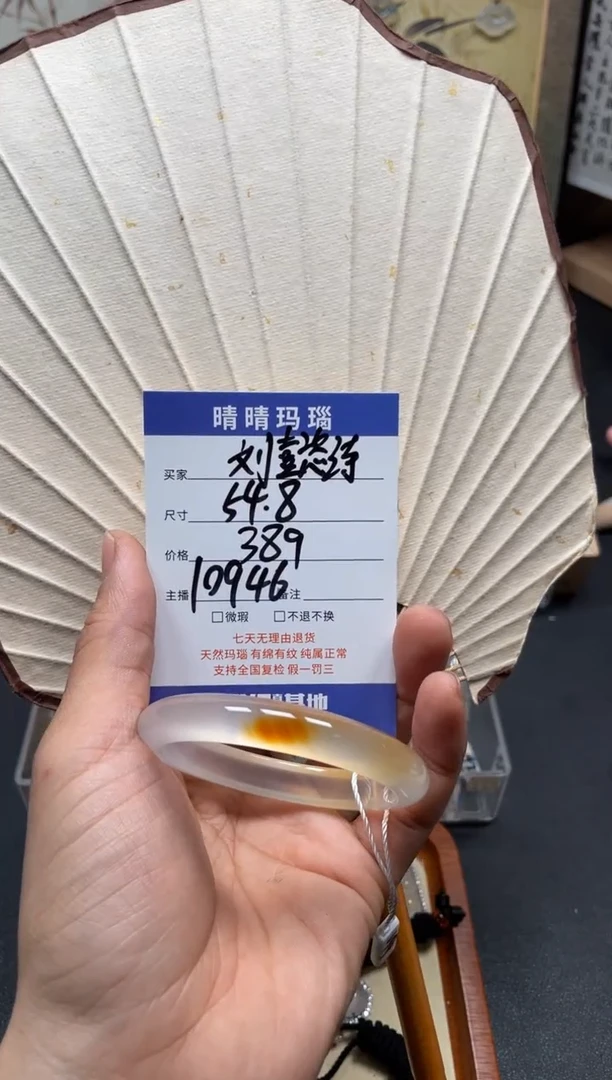 晴晴玛瑙
买家 刘
尺寸 54.8
价格 389
主播 10946 备注
□微瑕 □不退不换
七天无理由退货
天然玛瑙 有绵有纹 纯属正常
支持全国复检 假一罚三
基地